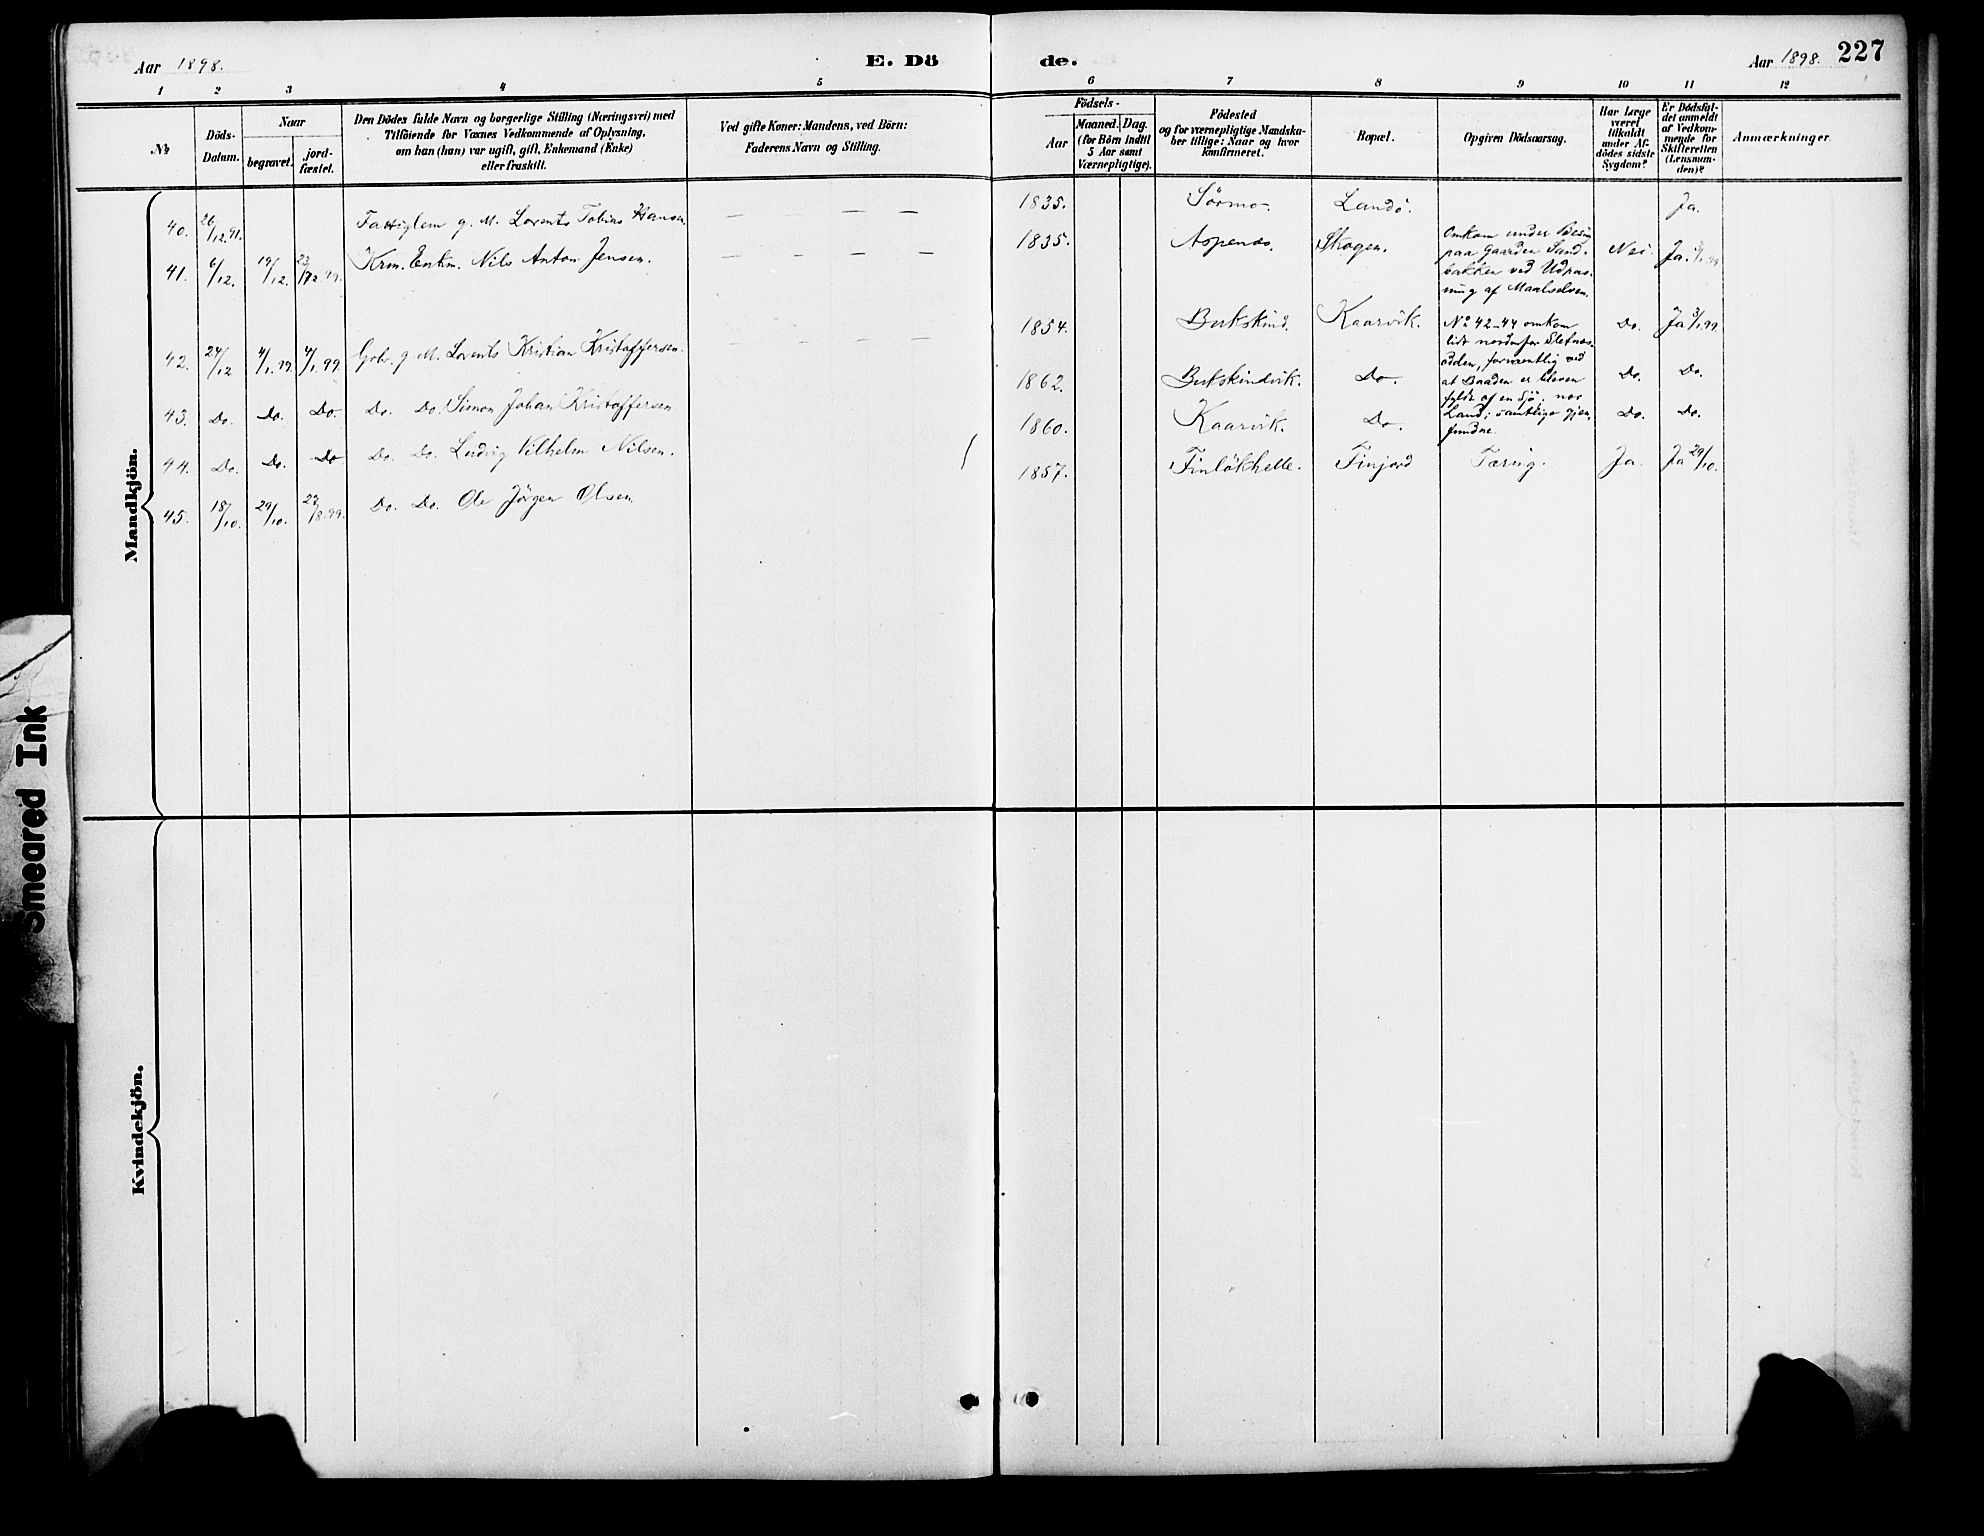 Aar 1898.
E. Dö
de.
Aar 1898.
227
1 2 3 4 5 6 7 8 9 10 11 12
No
Döds-
Datum.
Naar
begravet.
jord-
fæstet.
Den Dödes fulde Navn og borgerlige Stilling (Næringsvei) med
Tilföiende for Voxnes Vedkommende af Oplysning,
om han (hun) var ugift, gift, Enkemand (Enke)
eller fraskilt.
Ved gifte Koner: Mandens, ved Börn:
Faderens Navn og Stilling.
Födsels-
Aar
Maaned. Dag.
(for Börn indtil
5 Aar samt
Værnepligtige).
Födested
og for værnepligtige Mandska-
ber tillige: Naar og hvor
konfirmeret.
Bopæl.
Opgiven Dödsaarsag.
Har Læge
været
tilkaldt
under Af-
dödes sidste
Sygdom?
Er Dödsfal-
det anmeldt
af Vedkom-
mende for
Skifteretten
(Lensman-
den)?
Anmærkninger.
Mandkjön.
40. 26/12. 91. Fattiglem g. M. Lorents Tobias Hansen. — — — 1835. Sörmo. Landö. Ja.
41. 6/12. 19/12. 23/12. 99. Krm. Enkm. Nils Anton Jensen. — — — — 1835. Aspenes. Skogen. Nei. Ja.
Omkom under Besög
paa Gaarden Sand-
bakken ved Udras-
ning af Maalselven.
42. 24/12 4/1. 99. 4/1. 99. Gbr. g. M. Lorents Kristian Kristoffersen. — — — — 1854. Bukskind. Kaarvik. Do. Ja 3/1. 99.
No 42-44 omkom
lidt nordenfor Sletnes-
odden, formentlig ved
at Baaden er bleven
fyldt af en Sjö; nær
Land; samtlige gjen-
fundne.
43. Do. Do. Do. Do. Do. Simon Johan Kristoffersen 1862. Bukskindvik. Do. Do. Do.
44. Do. Do. Do Do. Do. Ludvig Vilhelm Nilsen. 1860. Kaarvik. Do. Do. Do.
45. 18/10. 29/10. 23/8. 99. Do. Do. Ole Jörgen Olsen 1857. Finlökhelle. Finjord Tæring. Ja. Ja 29/10.
Kvindekjön.
Smeared Ink